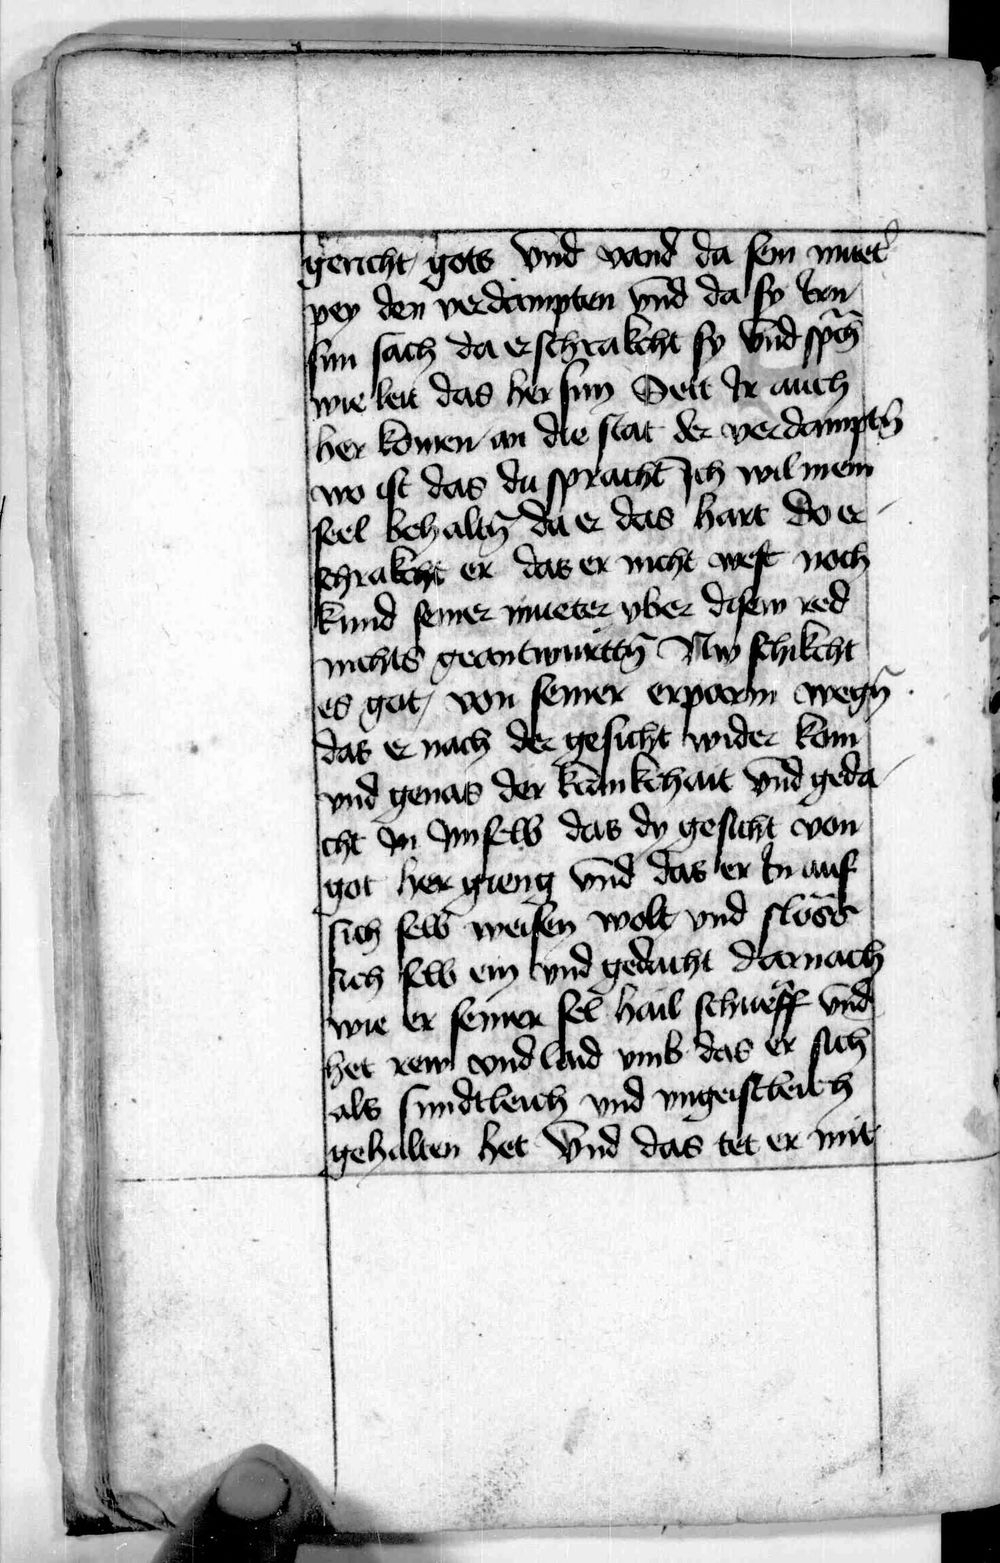 gericht gots vnd vand da sein mueter
pey den verdampten vnd da sy Irn
sun sach da erschrakcht sy vnd sprach
wie leit das her sun Seit Ir auch
her komen an die stat der verdamptn̄
wo ist das du spracht Ich wil mein
seel behaltn̄ da er das hart do er
schrakcht er das er nicht west noch
kund seiner mueter vber disew red
nichts geantwurttn̄ Nw schikcht
es got von seiner erparm wegn̄
das er nach der gesicht wider kom
vnd genas der krankchait vnd geda
cht In Im selb das dy gesicht von
got her gieng vnd das er In auf
sich selb weisen wolt vnd sloss
sich selb ein vnd gedacht darnach
wie er seiner sel hail schueff vnd
het rew vnd laid vmb das er sich
als sundtleich vnd vngeistleich
gehalten het vnd das tet er mit